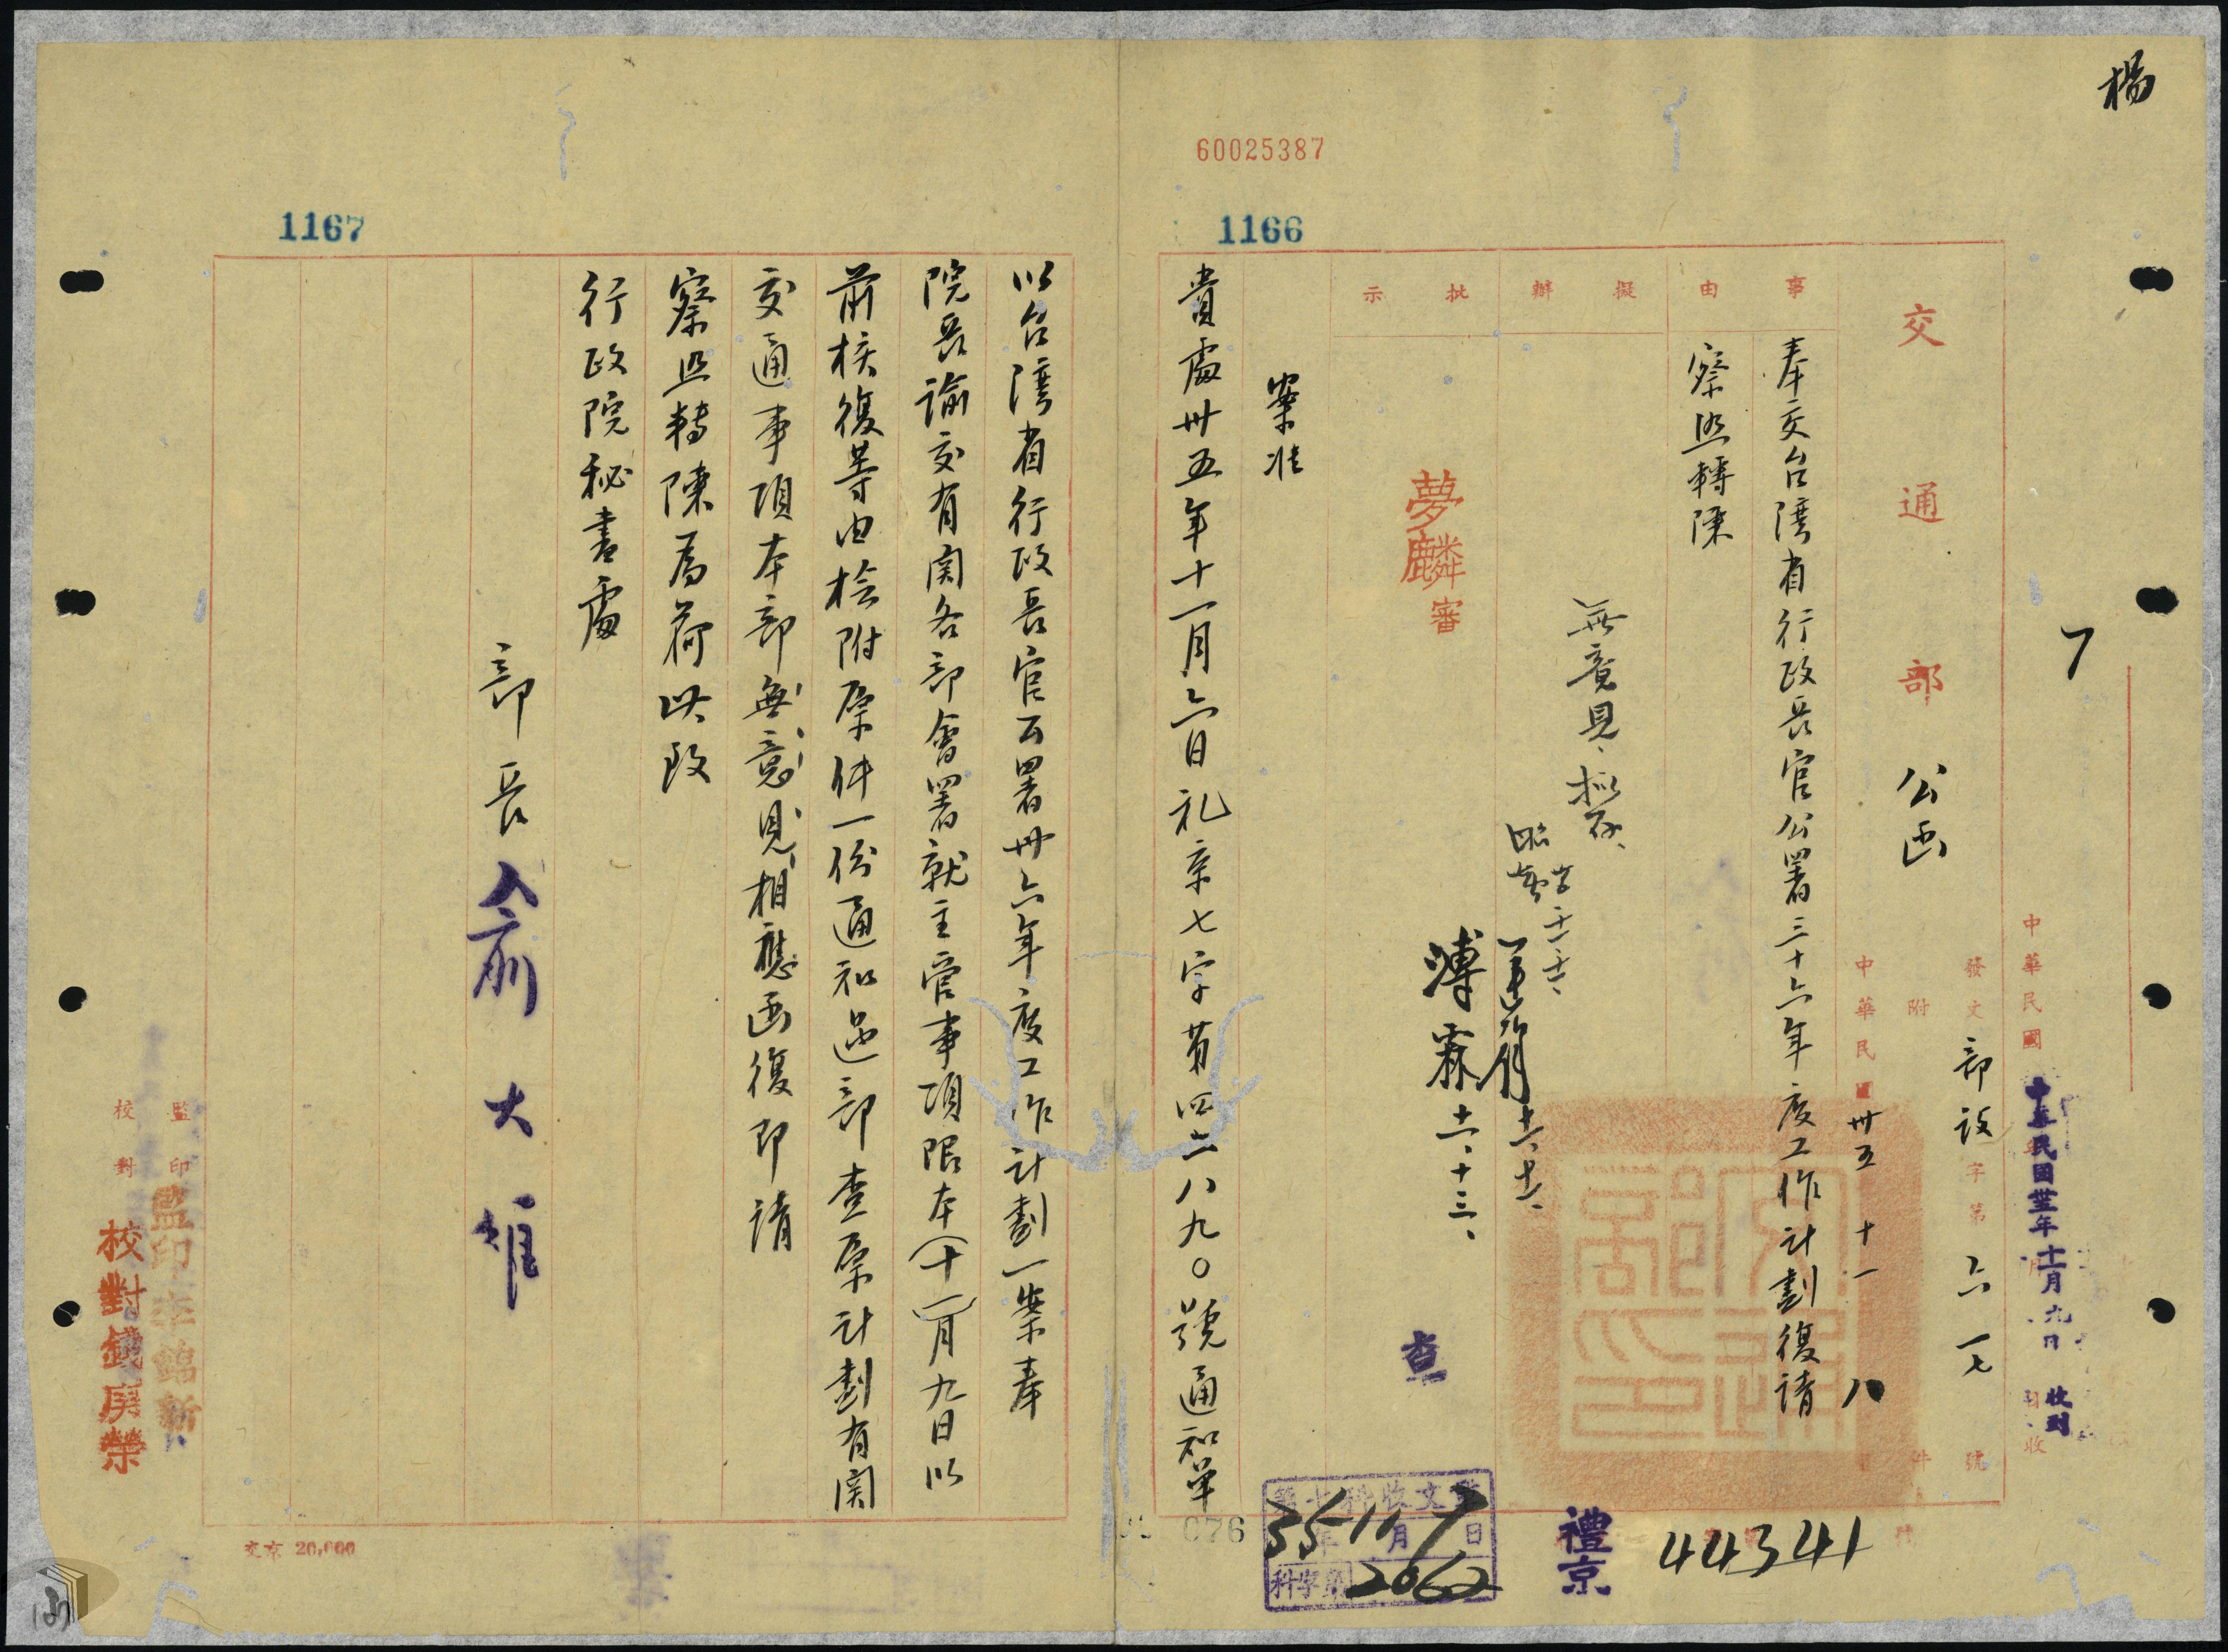 楊
7
60025387
1166
1167
中華民國
十一月九日
收到
交通部 公函
發文 部設字第六一七號
附件
中華民國卅五 十一 八
事由
奉交台灣省行政長官公署三十六年度工作計劃復請
察照轉陳
擬辦
無意見、擬存、
批示
夢麟審
溥霖 十一、十三、
查
案准
貴處卅五年十一月六日礼京七字第四六八九〇號通知單
以台灣省行政長官公署卅六年度工作計劃一案奉
院長諭交有関各部會署就主管事項限本(十一)月九日以
前核復等由檢附原件一份通知過部查原計劃有関
交通事項本部無意見相應函復即請
察照轉陳為荷此致
行政院秘書處
部長 俞大維
監印
校對 校對錢廣榮
交京 20,000
076
第七科收文章
35年11月9日
科字第2062
禮京
44341